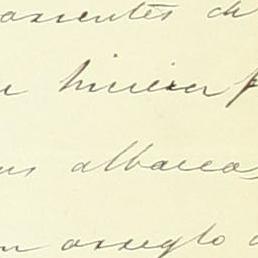 arientes de
n hiciera p
us albaceas
n arreglo a